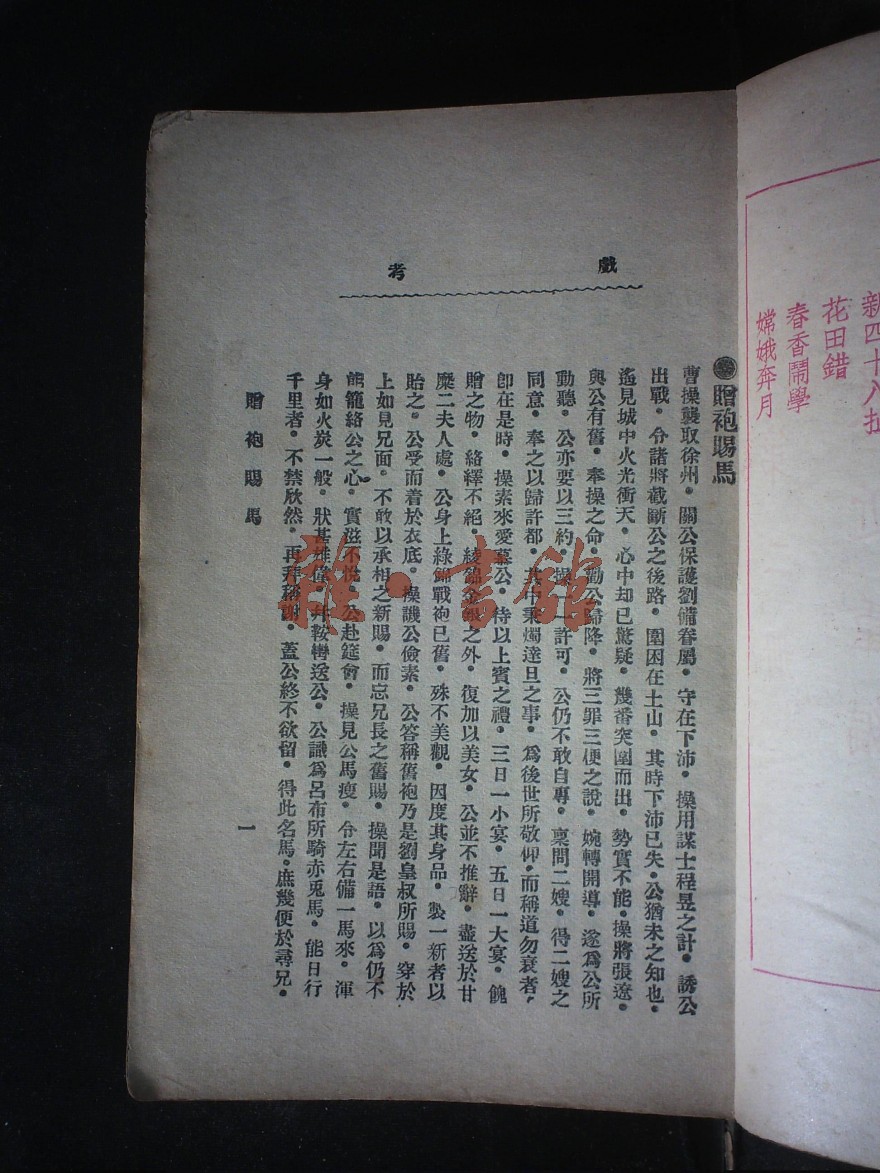 新四十八扯
花田錯
春香鬧學
嫦娥奔月
戲考
贈袍賜馬
曹操襲取徐州。關公保護劉備眷屬。守在下沛。操用謀士程昱之計。誘公
出戰。令諸將截斷公之後路。圍困在土山。其時下沛已失。公猶未之知也。
遙見城中火光衝天。心中却已驚疑。幾番突圍而出。勢實不能。操將張遼。
與公有舊。奉操之命。勸公歸降。將三罪三便之說。婉轉開導。遂爲公所
動聽。公亦要以三約。操一一許可。公仍不敢自專。稟問二嫂。得二嫂之
同意。奉之以歸許都。其中秉燭達旦之事。爲後世所敬仰。而稱道勿衰者。
卽在是時。操素來愛慕公。待以上賓之禮。三日一小宴。五日一大宴。餽
贈之物。絡繹不絕。綾錦金銀之外。復加以美女。公並不推辭。盡送於甘
糜二夫人處。公身上綠錦戰袍已舊。殊不美觀。因度其身品。製一新者以
貽之。公受而着於衣底。操譏公儉素。公答稱舊袍乃是劉皇叔所賜。穿於
上如見兄面。不敢以承相之新賜。而忘兄長之舊賜。操聞是語。以爲仍不
能籠絡公之心。實滋不悅。公赴筵會。操見公馬瘦。令左右備一馬來。渾
身如火炭一般。狀甚雄偉。幷鞍轡送公。公識爲呂布所騎赤兎馬。能日行
千里者。不禁欣然。再拜稱謝。蓋公終不欲留。得此名馬。庶幾便於尋兄。
贈袍賜馬
一
雅·書館